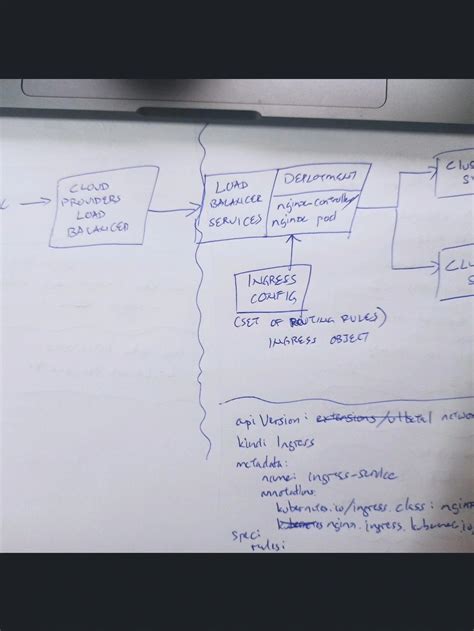 CLOUD
PROVIDERS
LOAD
BALANCED
LOAD
BALANCER
SERVICES
DEPLOYMENT
nginx-controller/
nginx pod
CLUS
S
CLU
S
INGRESS
CONFIG
(SET OF ROUTING RULES)
INGRESS OBJECT
apiVersion: extensions/v1beta1 network
kind: Ingress
metadata:
name: ingress-service
annotations:
kubernetes.io/ingress.class: nginx
nginx.ingress.kubernetes.io
spec:
rules: